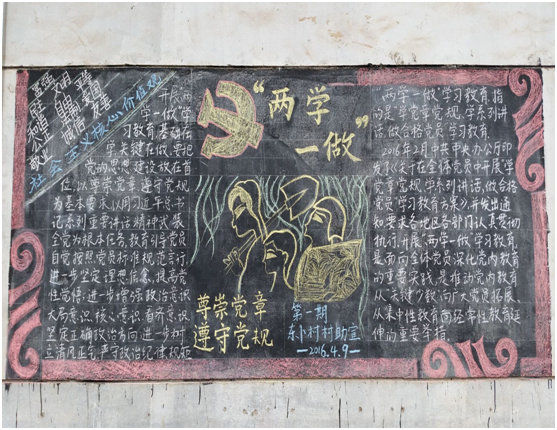 富强 文明
和谐
诚信 友善
敬业
社会主义核心价值观
开展“两
学一做”学
习教育，基础在
学，关键在做。要把
党的思想建设放在首
位，以尊崇党章、遵守党规
为基本要求，以用习近平总书
记系列重要讲话精神武装
全党为根本任务，教育引导党员
自觉按照党员标准规范言行，
进一步坚定理想信念，提高党
性觉悟；进一步增强政治意识
大局意识、核心意识、看齐意识
坚定正确政治方向；进一步树
立清风正气，严守政治纪律规矩
“两学
一做”
尊崇党章
遵守党规
第一期
东卜村村助宣
—2016.4.9—
“两学一做”学习教育，指
的是“学党章党规、学系列讲
话，做合格党员”学习教育。
2016年2月，中共中央办公厅印
发了《关于在全体党员中开展“学
党章党规、学系列讲话，做合格
党员”学习教育方案》，并发出通
知，要求各地区各部门认真贯彻
执行。开展“两学一做”学习教育，
是面向全体党员深化党内教育
的重要实践，是推动党内教育
从“关键少数”向广大党员拓展、
从集中性教育向经常性教育延
伸的重要举措。